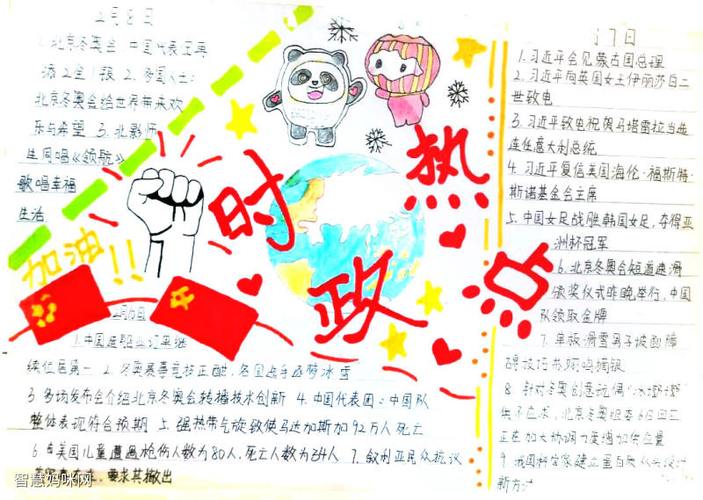 2月8日
1.北京冬奥会 中国代表王典
派2金1银 2.多国人士:
北京冬奥会给世界带来欢
乐与希望 3.北影师
生同唱《领航》
歌唱幸福
生活
加油!!
时政热点
2月
1.中国造船业订单继
续位居第一 2.冬奥赛事竞技正酣,各国战手逐梦冰雪
3.多场发布会介绍北京冬奥会转播技术创新 4.中国代表团:中国队
整体表现符合预期 5.强热带气旋致使马达加斯加92万人死亡
6.美国儿童遭遇枪伤人数为80人,死亡人数为 7.叙利亚民众抗议
要求其撤出
7日
1.习近平会见蒙古国总理
2.习近平向英国女王伊丽莎白二
世致电
3.习近平致电祝贺马塔雷拉当选
连任意大利总统
4.习近平复信美国海伦·福斯特·
斯诺基金会主席
5.中国女足战胜韩国女足,夺得亚
洲杯冠军
6.北京冬奥会短道速滑
颁奖仪式昨晚举行,中国
队领取金牌
7.单板滑雪男子坡面障
碍技巧苏翊鸣摘银
8.针对冬奥创意玩偶"冰墩墩"
供不应求,北京冬奥组委6日回应
正在加大协调力度增加供应量
9.我国科学家建立蛋白质从头设计
新方法
智慧妈咪网